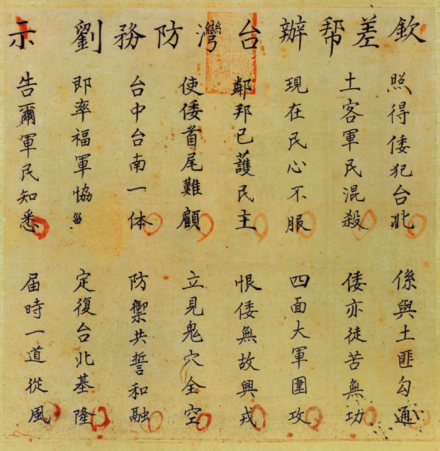 欽差幫辦台灣防務劉示
照得倭犯台北
係與土匪勾通
土客軍民混殺
倭亦徒苦無功
現在民心不服
四面大軍圍攻
鄰邦已護民主
恨倭無故興戎
使倭首尾難顧
立見鬼穴全空
台中台南一体
防禦共誓和融
即率福軍協
定復台北基隆
告爾軍民知悉
届時一道從風